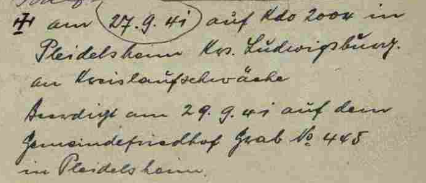 ✝ am 27.9.41 auf Kdo 2004 in
Pleidelsheim Krs. Ludwigsburg.
an Kreislaufschwäche
Beerdigt am 29.9.41 auf dem
Gemeindefriedhof Grab No 445
in Pleidelsheim.